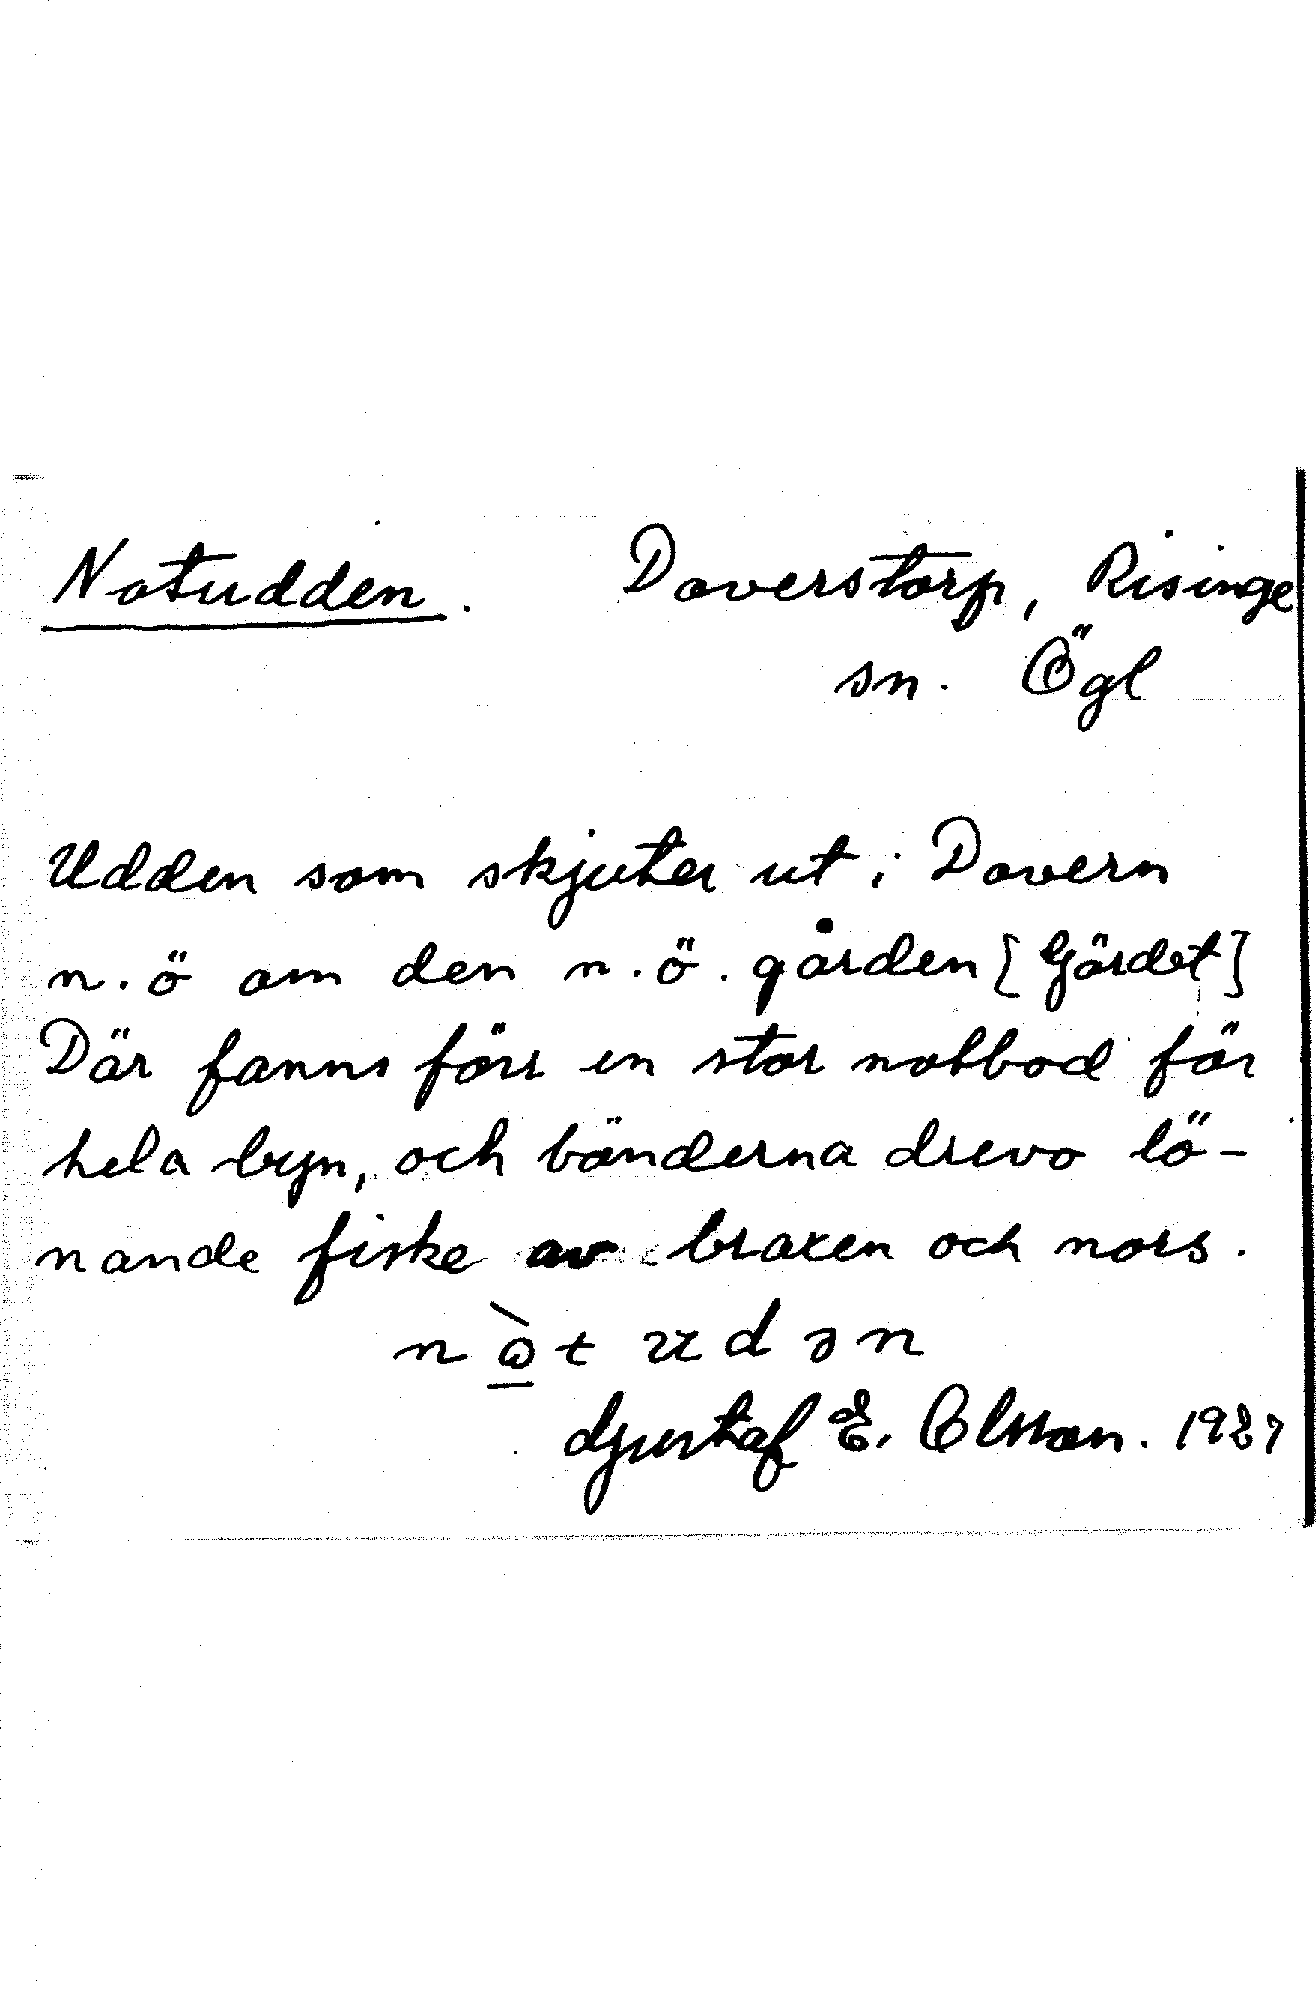 Notudden. Doverstorp, Risinge
sn. Ögl
Udden som skjuter ut i Dovern
n.ö om den n.ö. gården [Gärdet]
Där fanns förr en stor notbod för
hela byn, och bönderna drevo lö-
nande fiske av braxen och nors.
n ò t u d ə n
Gustaf E. Olsson. 1927